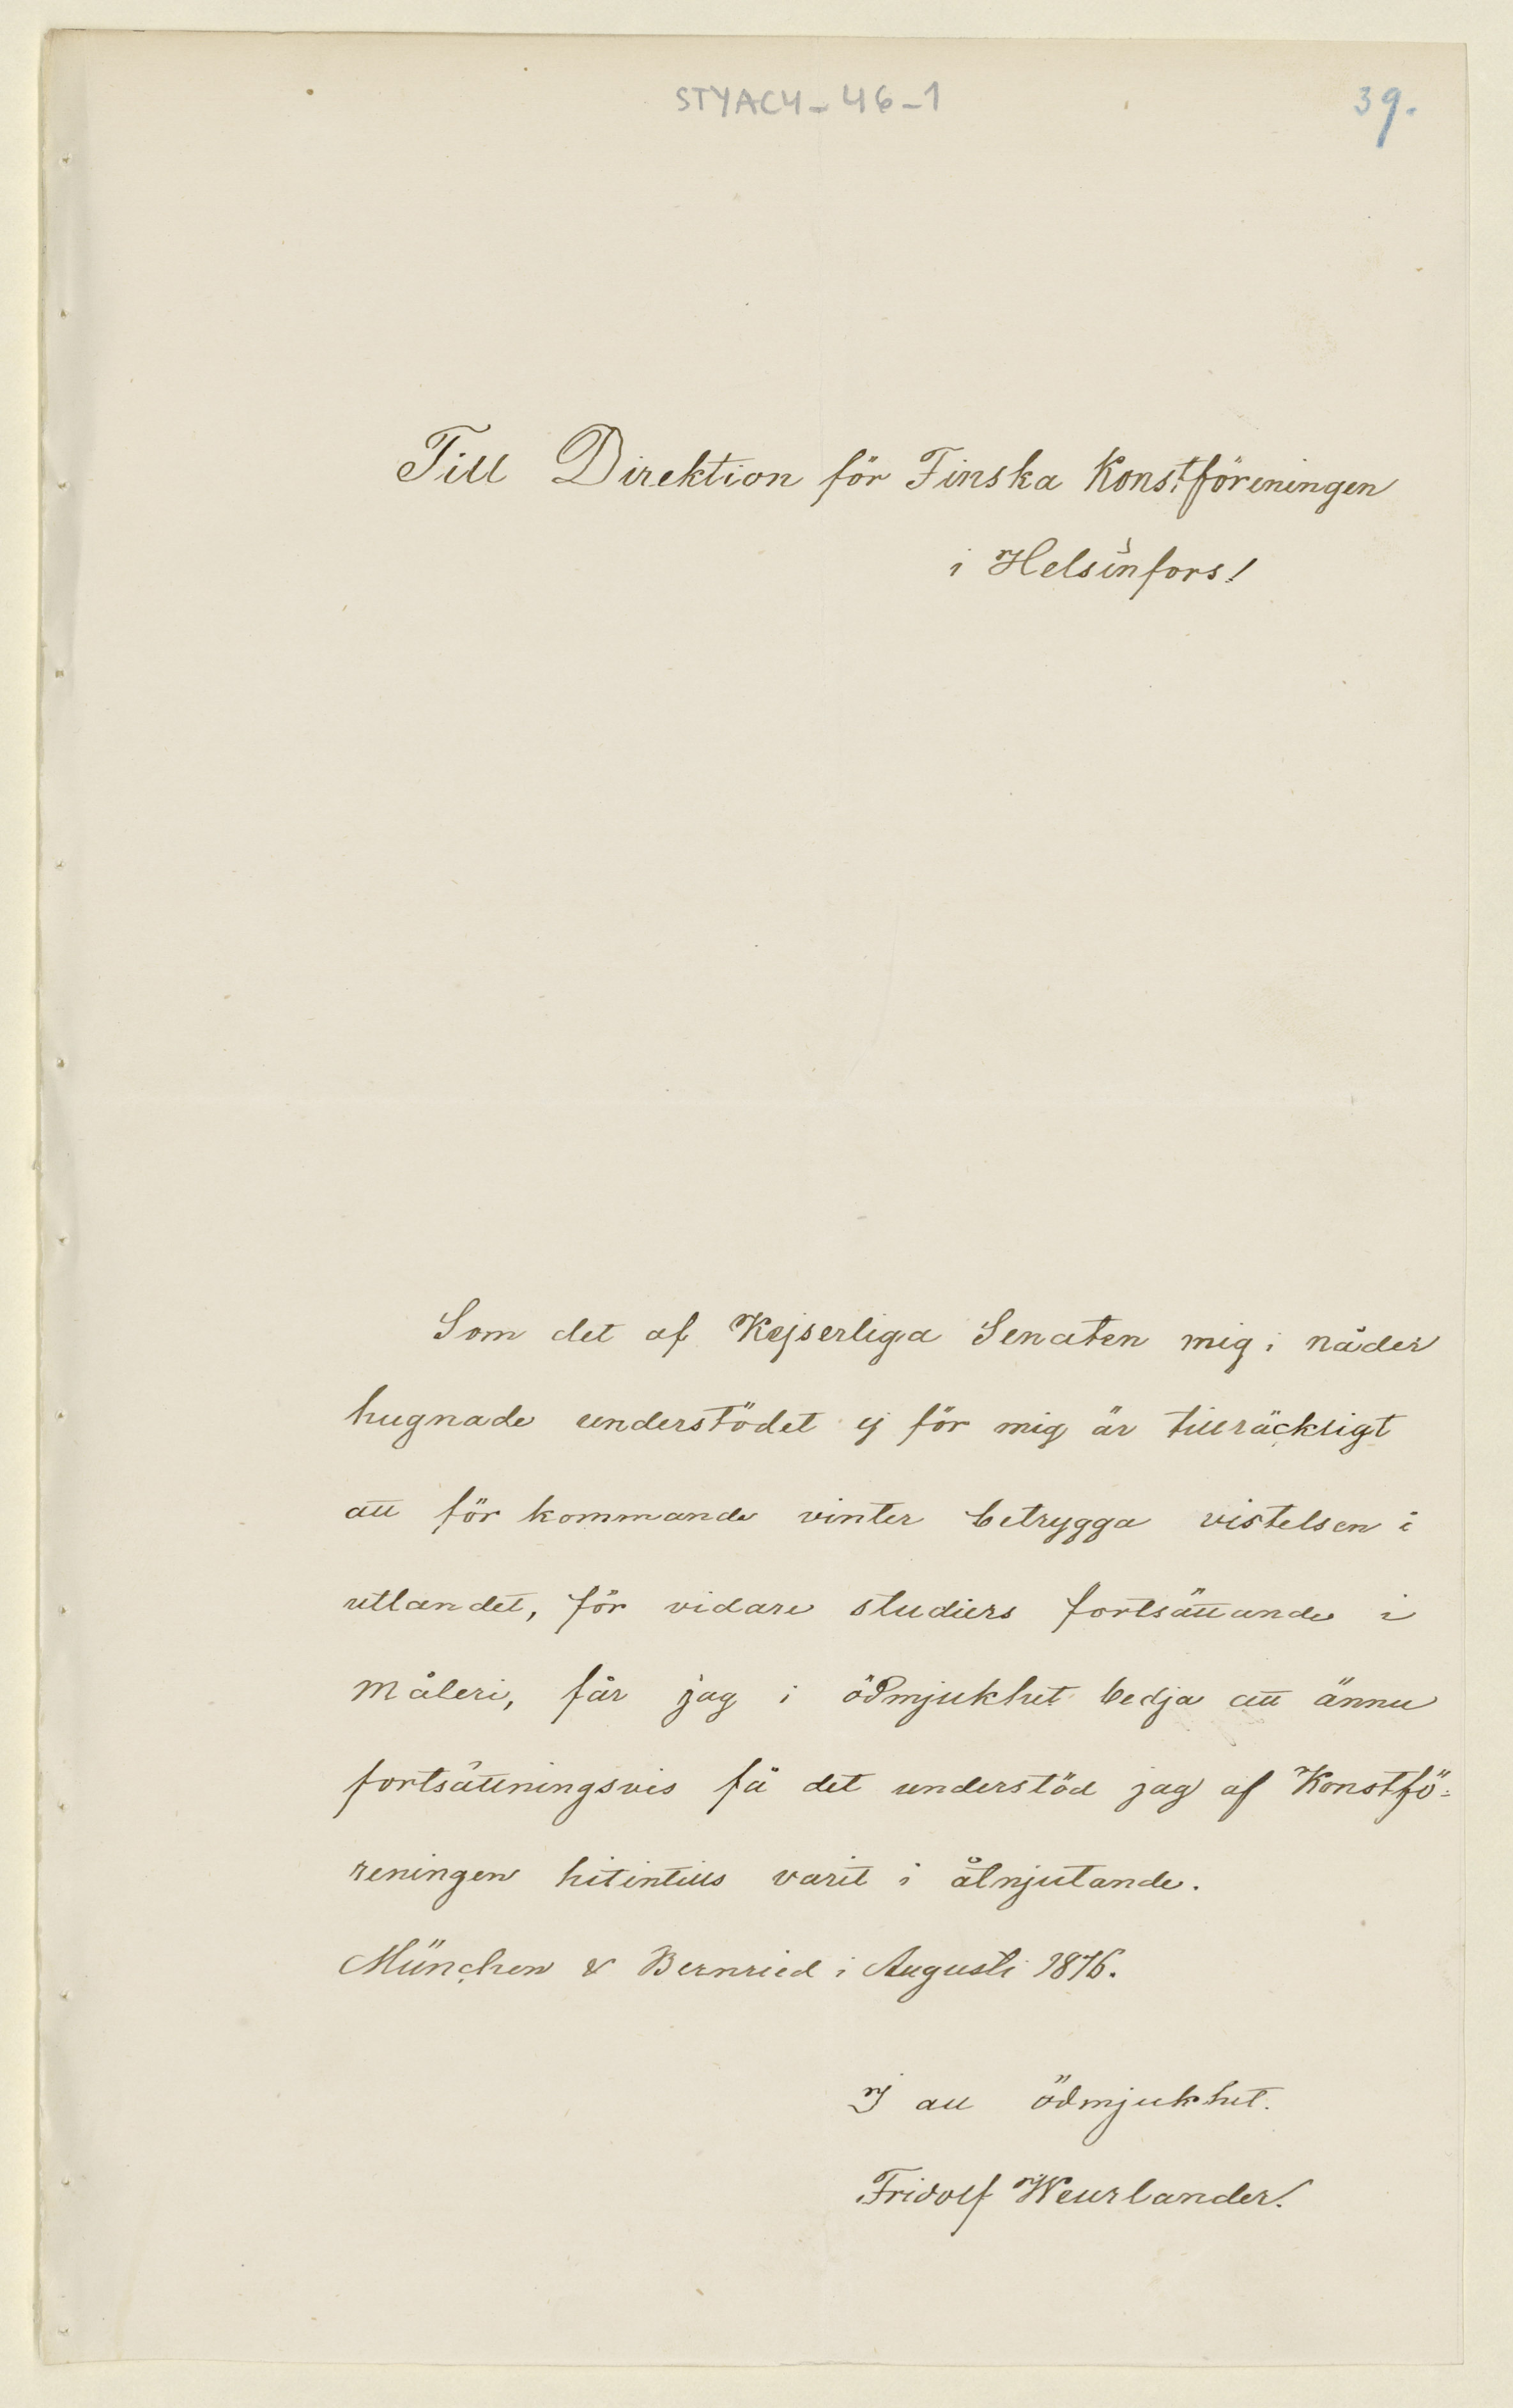 STYACY-46-1
39.
Till Direktion för Finska Konstföreningen
i Helsinfors!
Som det af Kejserliga Senaten mig i nåder
hugnade understödet ej för mig är tillräckligt
att för kommande vinter betrygga vistelsen i
utlandet, för vidare studiers fortsättande i
måleri, får jag i ödmjukhet bedja att ännu
fortsättningsvis få det understöd jag af Konstfö-
reningen hitintills varit i åtnjutande.
München & Bernried i Augusti 1876.
I all ödmjukhet.
Fridolf Weurlander.